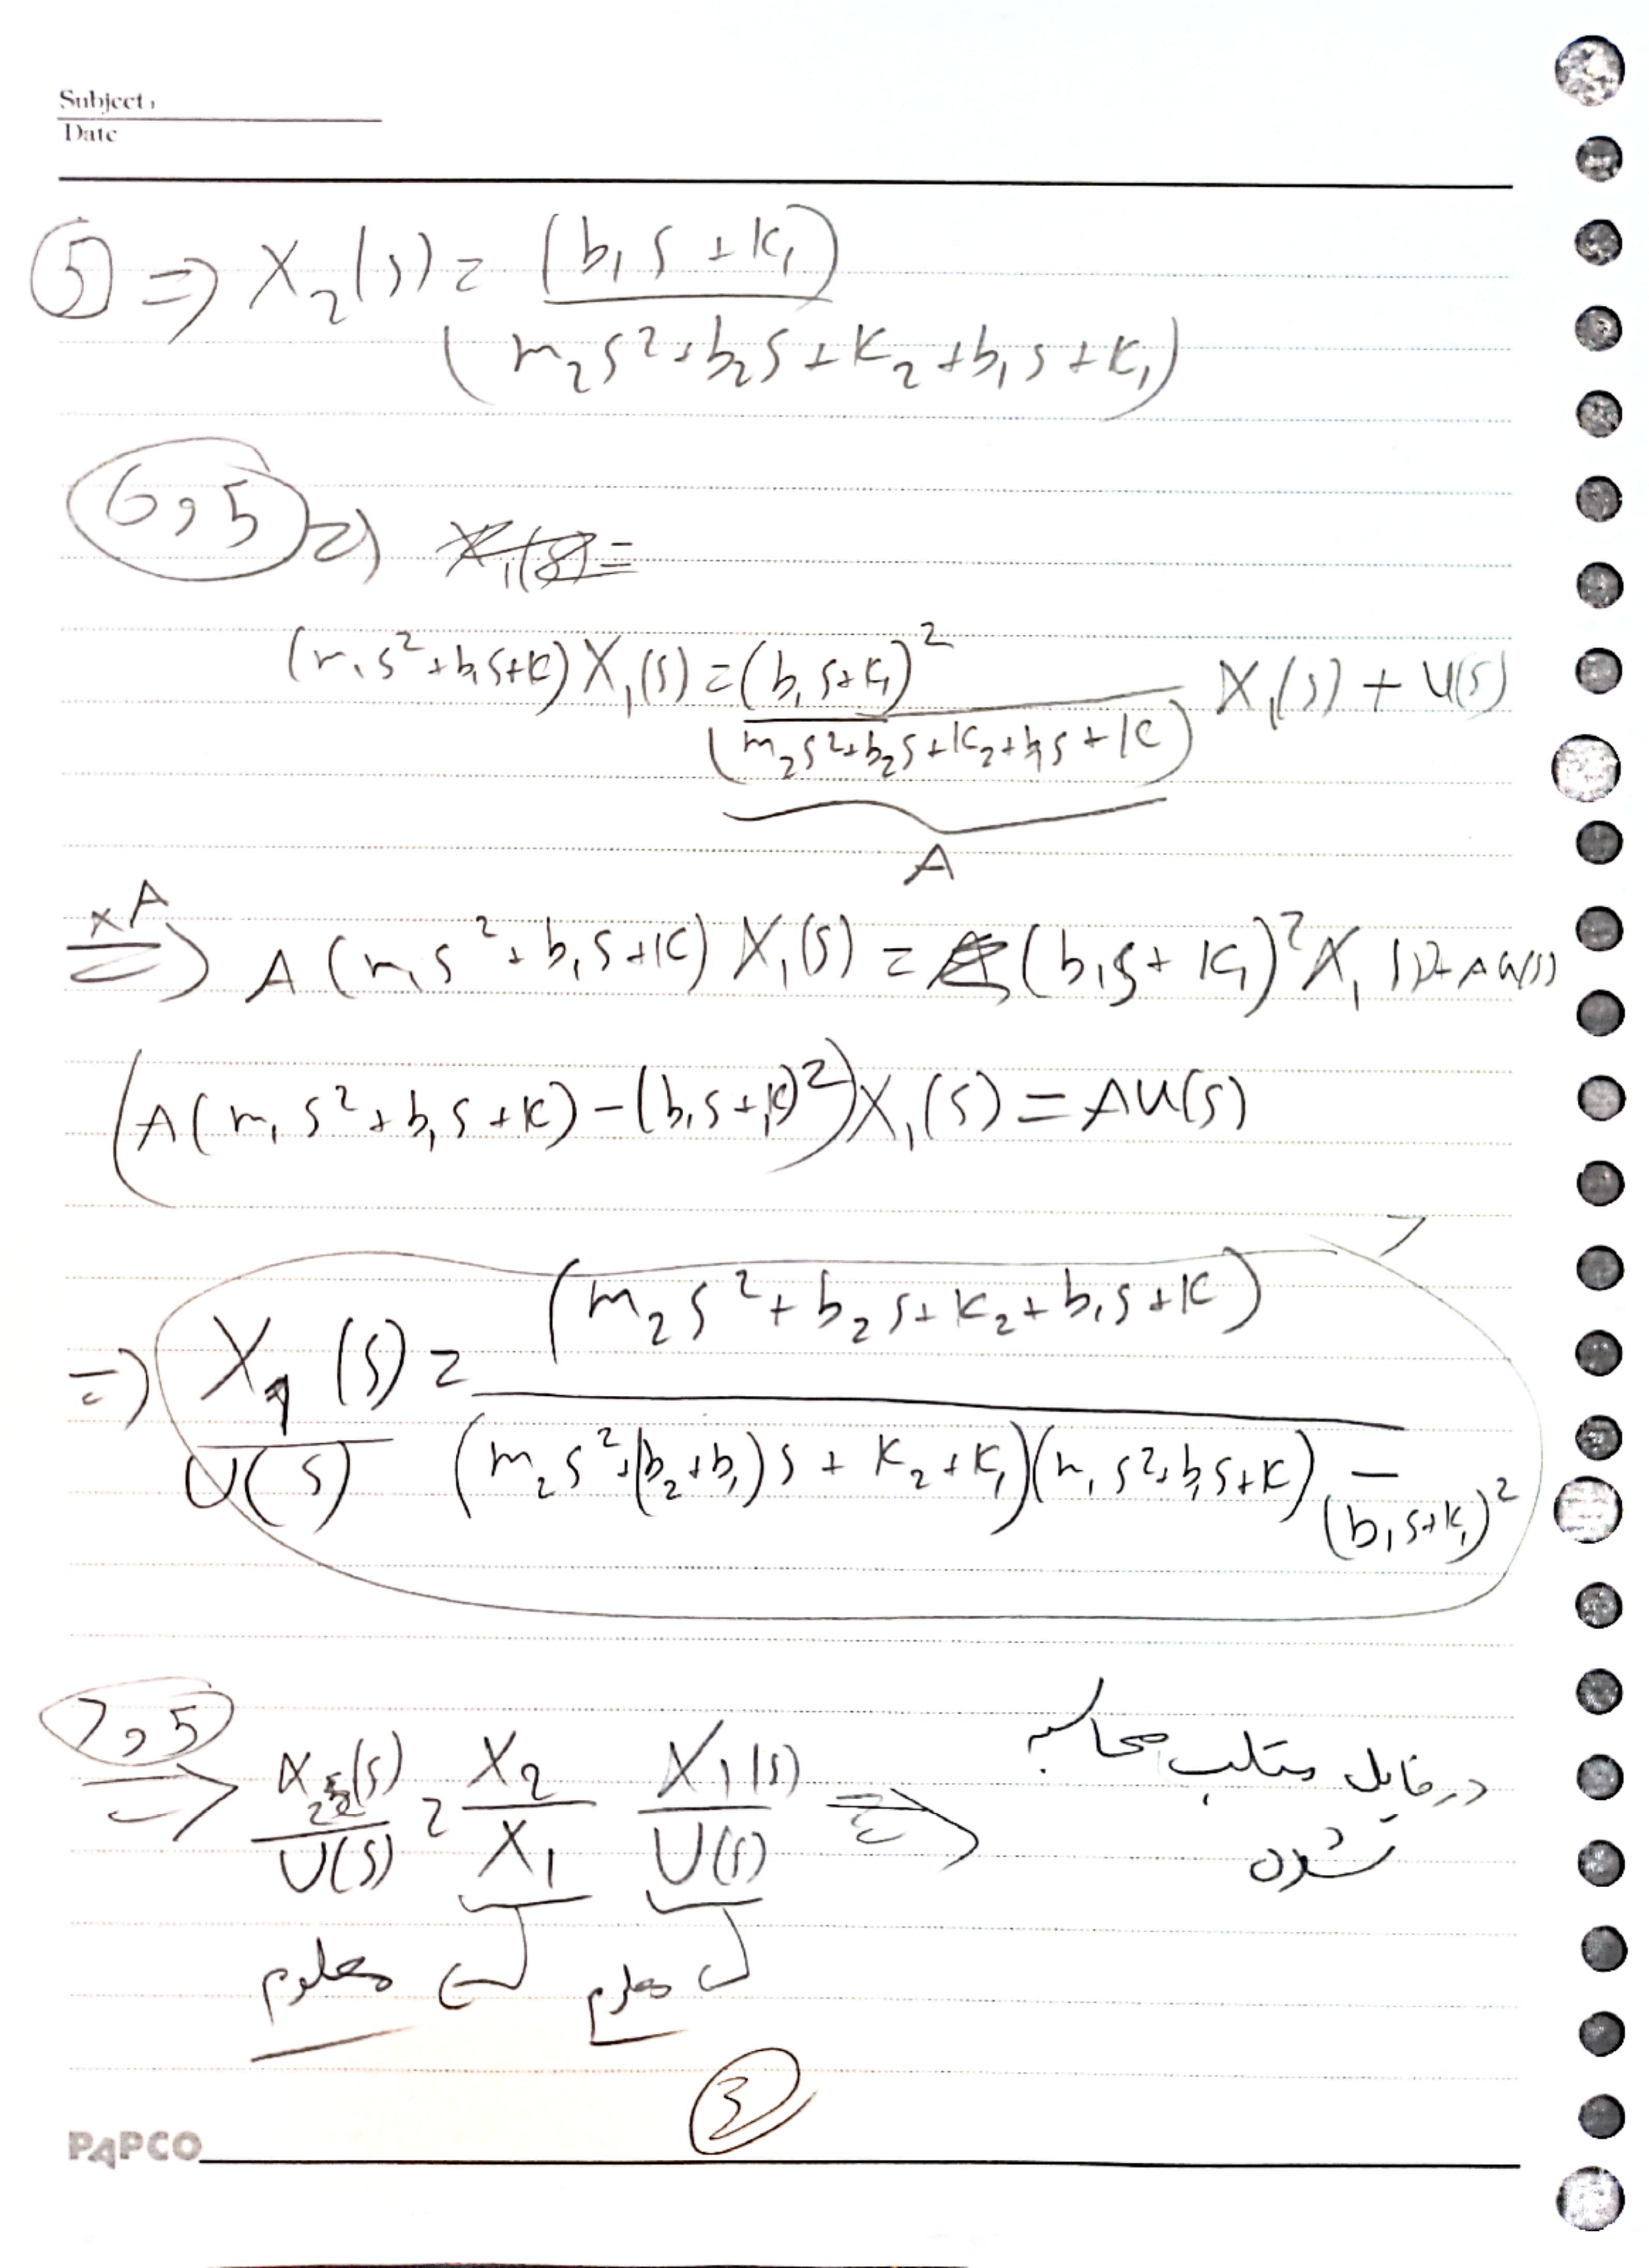 Subject:
Date
⑤ ⇒ X₂(s) = (b₁s + k₁) / (m₂s² + b₂s + k₂ + b₁s + k₁)
6 و 5 ⇒ X₁(s) =
(m₁s² + b₁s + k) X₁(s) = (b₁s + k₁)² / (m₂s² + b₂s + k₂ + b₁s + k) X₁(s) + U(s)
A
×A ⇒ A(m₁s² + b₁s + k) X₁(s) = (b₁s + k₁)² X₁(s) + AU(s)
(A(m₁s² + b₁s + k) − (b₁s + k)²) X₁(s) = AU(s)
⇒ X₁(s) / U(s) = (m₂s² + b₂s + k₂ + b₁s + k) / (m₂s² + (b₂ + b₁)s + k₂ + k₁)(m₁s² + b₁s + k) − (b₁s + k₁)²
7
7 و 5 ⇒ X₂(s) / U(s) = X₂ / X₁ X₁(s) / U(s) ⇒ در فایل متلب محاسبه
شدن
معلوم معلوم
③
PAPCO